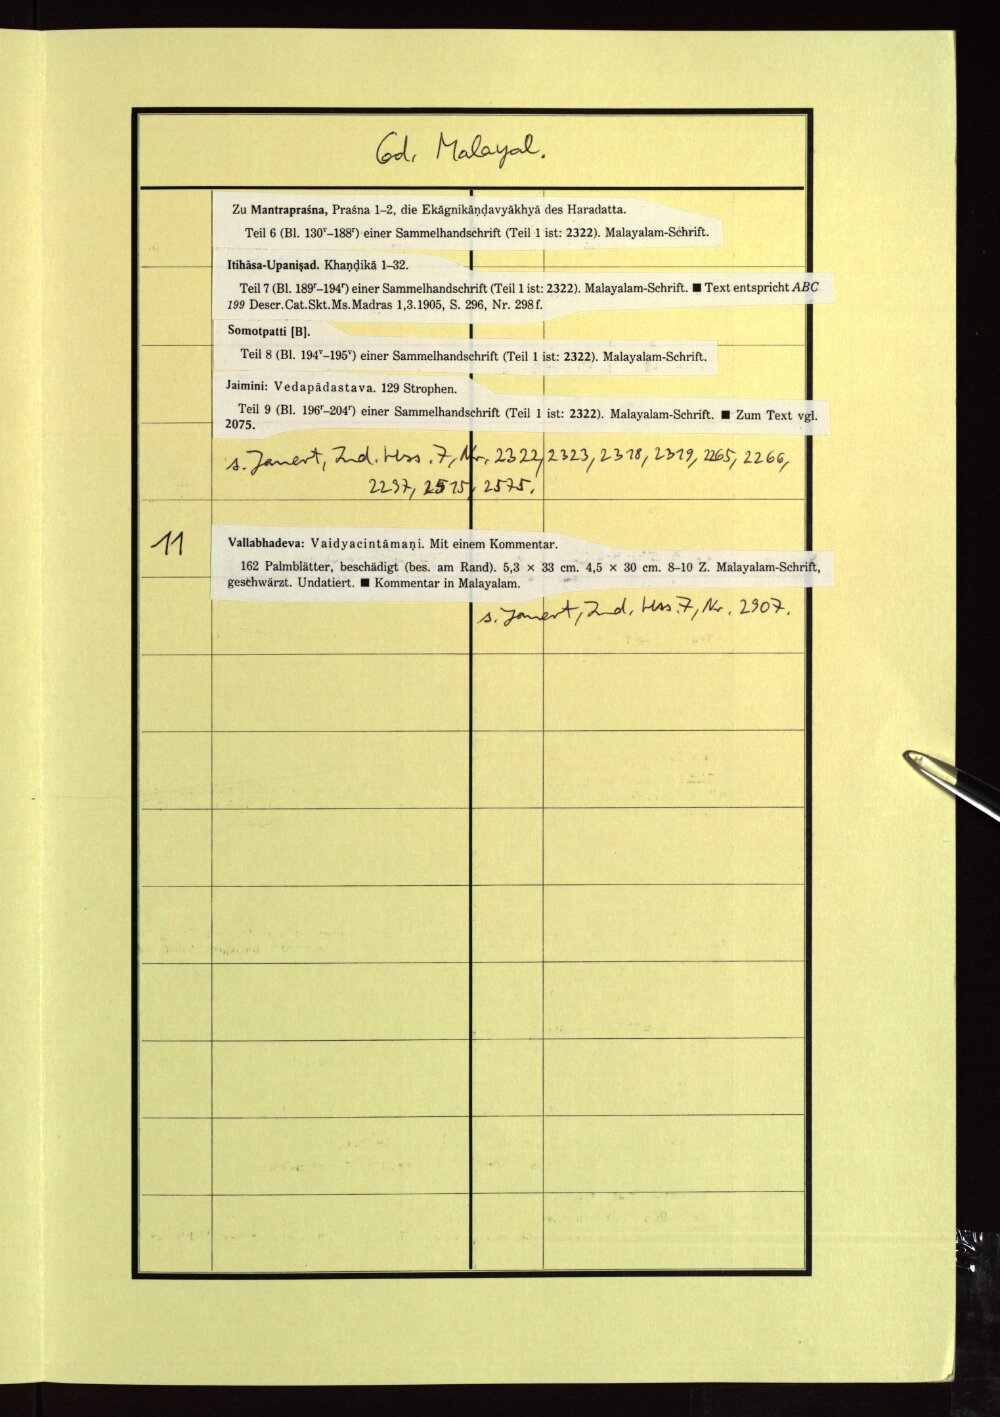 Cod. Malayal.
Zu Mantrapraśna, Praśna 1–2, die Ekāgnikāṇḍavyākhyā des Haradatta.
Teil 6 (Bl. 130ᵛ–188ʳ) einer Sammelhandschrift (Teil 1 ist: 2322). Malayalam-Schrift.
Itihāsa-Upaniṣad. Khaṇḍikā 1–32.
Teil 7 (Bl. 189ʳ–194ʳ) einer Sammelhandschrift (Teil 1 ist: 2322). Malayalam-Schrift. ■ Text entspricht ABC
199 Descr.Cat.Skt.Ms.Madras 1,3.1905, S. 296, Nr. 298f.
Somotpatti [B].
Teil 8 (Bl. 194ᵛ–195ᵛ) einer Sammelhandschrift (Teil 1 ist: 2322). Malayalam-Schrift.
Jaimini: Vedapādastava. 129 Strophen.
Teil 9 (Bl. 196ʳ–204ʳ) einer Sammelhandschrift (Teil 1 ist: 2322). Malayalam-Schrift. ■ Zum Text vgl.
2075.
s. Janert, Ind. Hss. 7, Nr. 2322, 2323, 2318, 2319, 2265, 2266,
2297, 2515, 2575.
11 Vallabhadeva: Vaidyacintāmaṇi. Mit einem Kommentar.
162 Palmblätter, beschädigt (bes. am Rand). 5,3 × 33 cm. 4,5 × 30 cm. 8–10 Z. Malayalam-Schrift,
geschwärzt. Undatiert. ■ Kommentar in Malayalam.
s. Janert, Ind. Hss. 7, Nr. 2907.